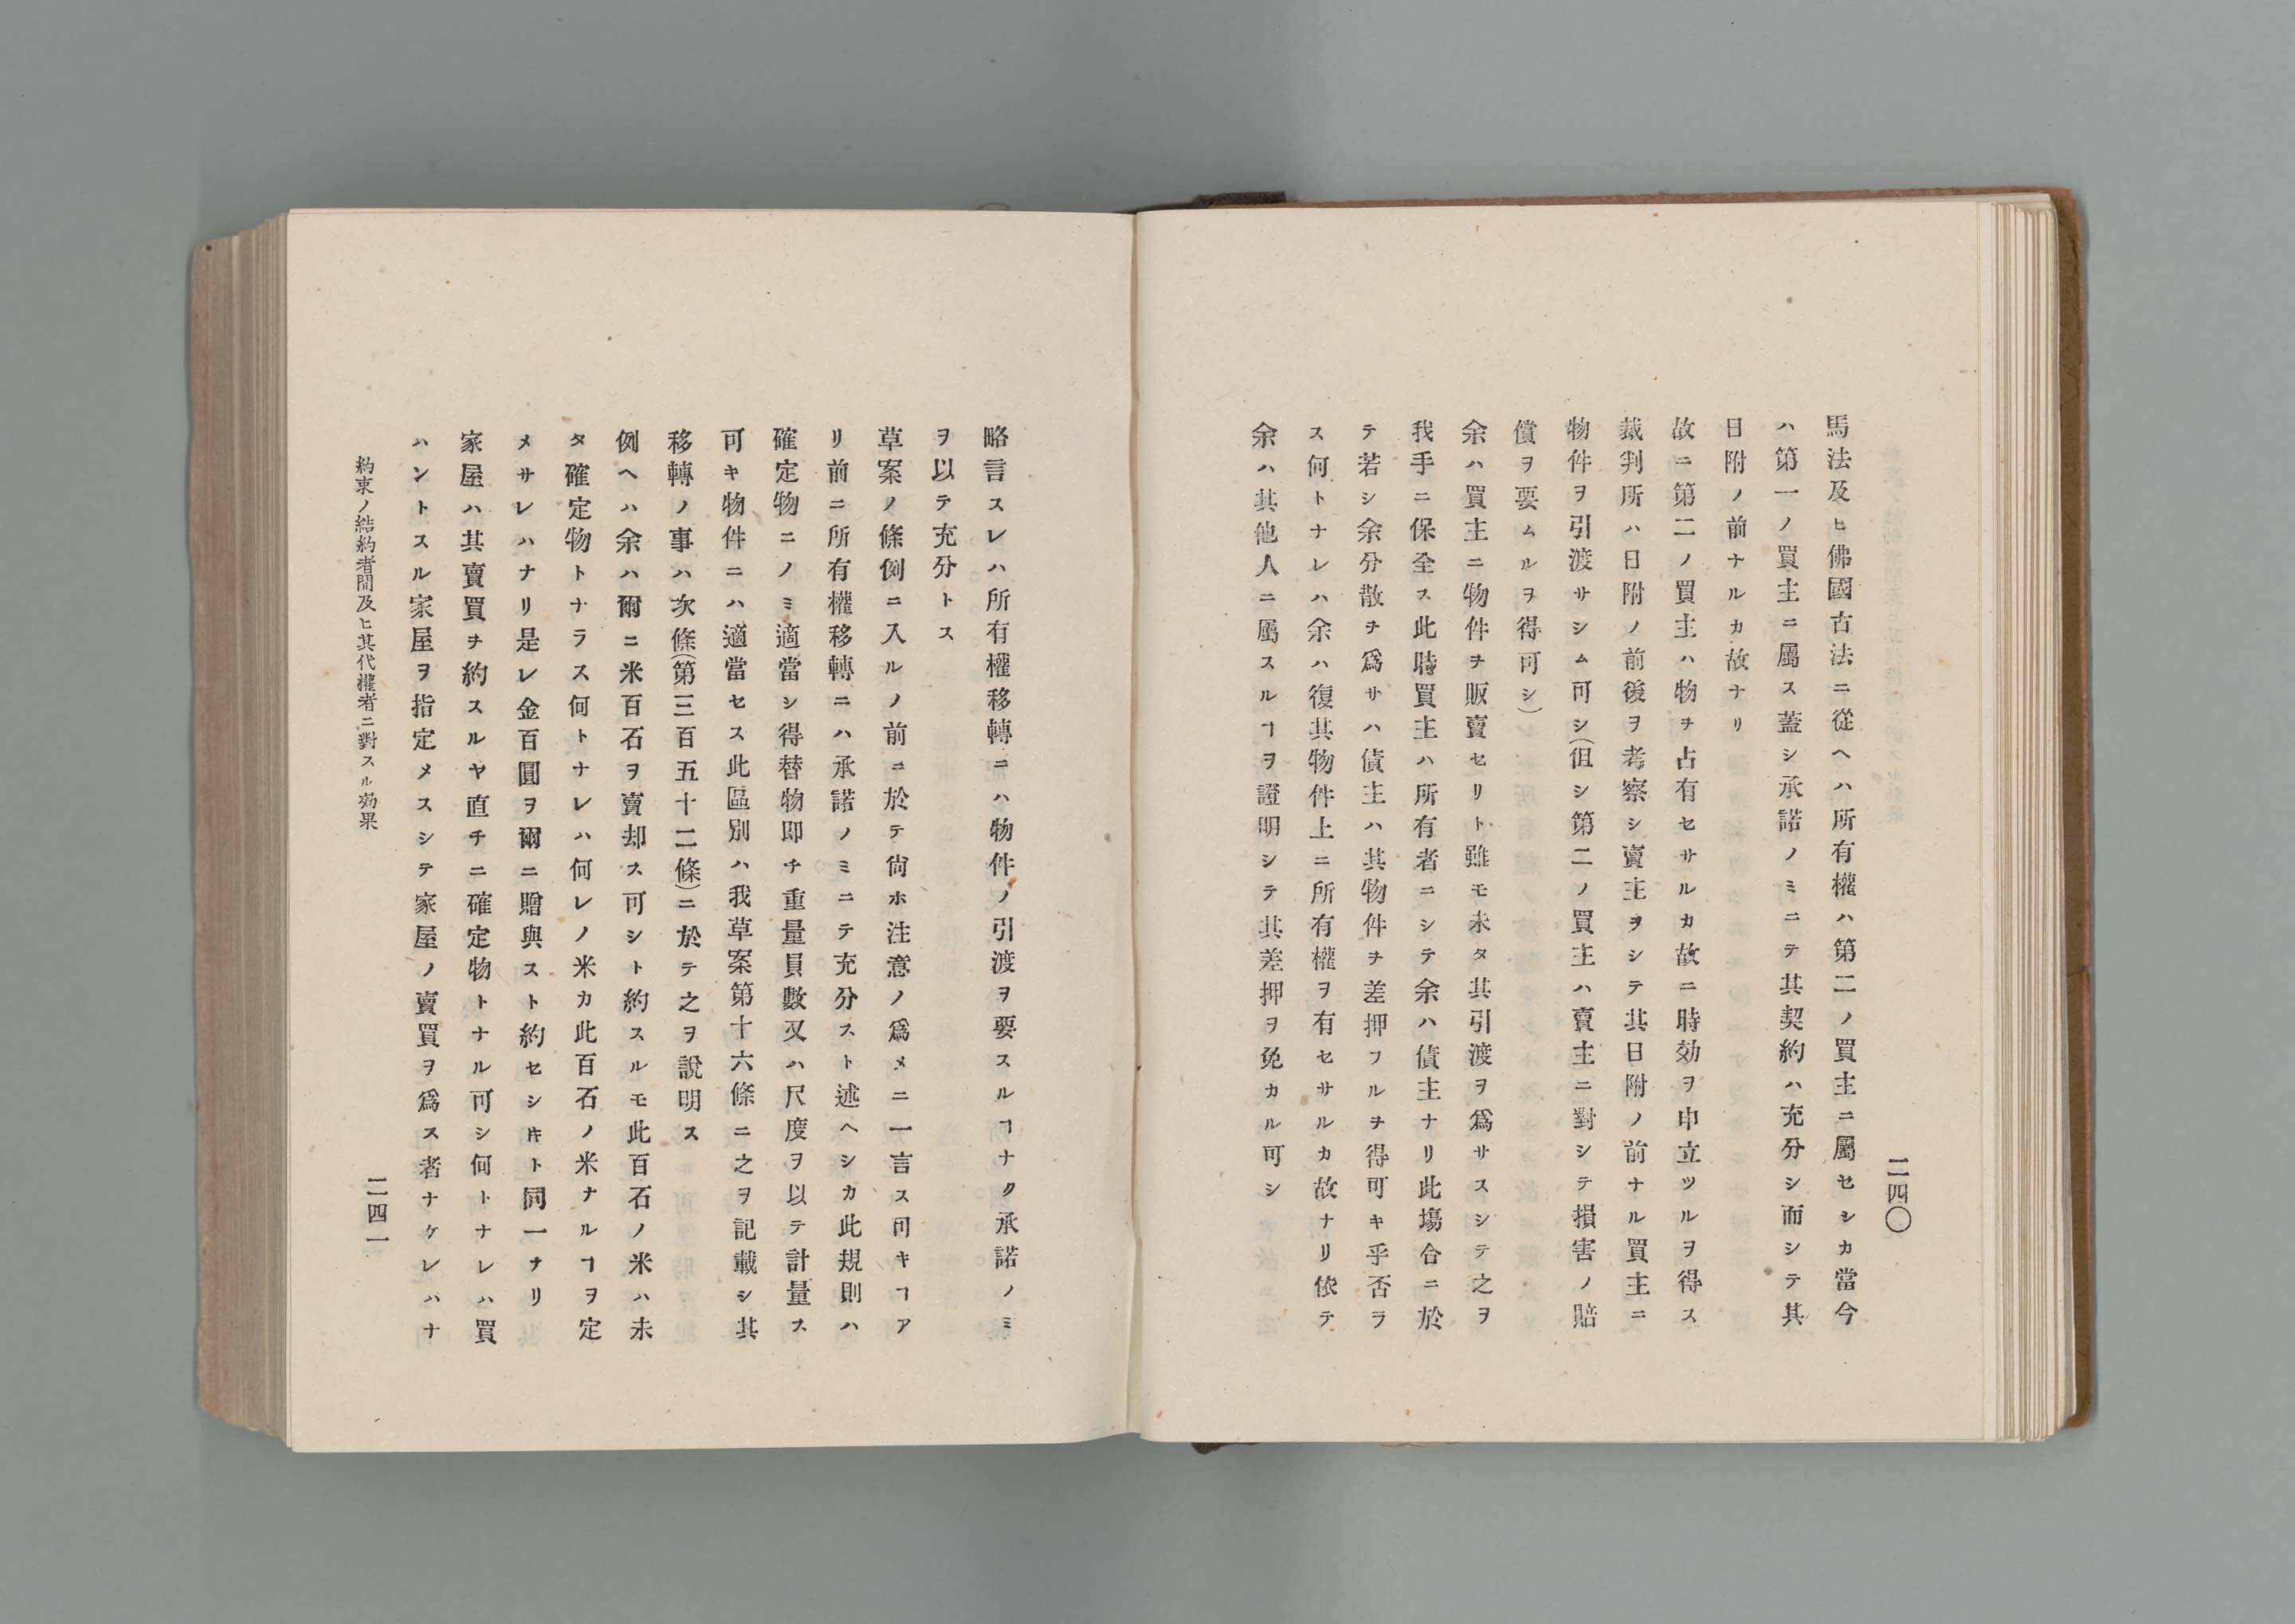 二四〇
馬法及ヒ佛國古法ニ從ヘハ所有權ハ第二ノ買主ニ屬セシカ當今
ハ第一ノ買主ニ屬ス蓋シ承諾ノミニテ其契約ハ充分シ而シテ其
日附ノ前ナルカ故ナリ
故ニ第二ノ買主ハ物ヲ占有セサルカ故ニ時効ヲ申立ツルヲ得ス
裁判所ハ日附ノ前後ヲ考察シ賣主ヲシテ其日附ノ前ナル買主ニ
物件ヲ引渡サシム可シ(但シ第二ノ買主ハ賣主ニ對シテ損害ノ賠
償ヲ要ムルヲ得可シ)
余ハ買主ニ物件ヲ販賣セリト雖モ未タ其引渡ヲ爲サスシテ之ヲ
我手ニ保全ス此時買主ハ所有者ニシテ余ハ債主ナリ此塲合ニ於
テ若シ余分散ヲ爲サハ債主ハ其物件ヲ差押フルヲ得可キ乎否ラ
ス何トナレハ余ハ復其物件上ニ所有權ヲ有セサルカ故ナリ依テ
余ハ其他人ニ屬スルヿヲ證明シテ其差押ヲ免カル可シ
略言スレハ所有權移轉ニハ物件ノ引渡ヲ要スルヿナク承諾ノミ
ヲ以テ充分トス
草案ノ條例ニ入ルノ前ニ於テ尙ホ注意ノ爲メニ一言ス可キヿア
リ前ニ所有權移轉ニハ承諾ノミニテ充分スト述ヘシカ此規則ハ
確定物ニノミ適當シ得替物即チ重量員數又ハ尺度ヲ以テ計量ス
可キ物件ニハ適當セス此區別ハ我草案第十六條ニ之ヲ記載シ其
移轉ノ事ハ次條(第三百五十二條)ニ於テ之ヲ說明ス
例ヘハ余ハ爾ニ米百石ヲ賣却ス可シト約スルモ此百石ノ米ハ未
タ確定物トナラス何トナレハ何レノ米カ此百石ノ米ナルヿヲ定
メサレハナリ是レ金百圓ヲ爾ニ贈與スト約セシ𪜈ト同一ナリ
家屋ハ其賣買ヲ約スルヤ直チニ確定物トナル可シ何トナレハ買
ハントスル家屋ヲ指定メスシテ家屋ノ賣買ヲ爲ス者ナケレハナ
約束ノ結約者間及ヒ其代權者ニ對スル効果
二四一